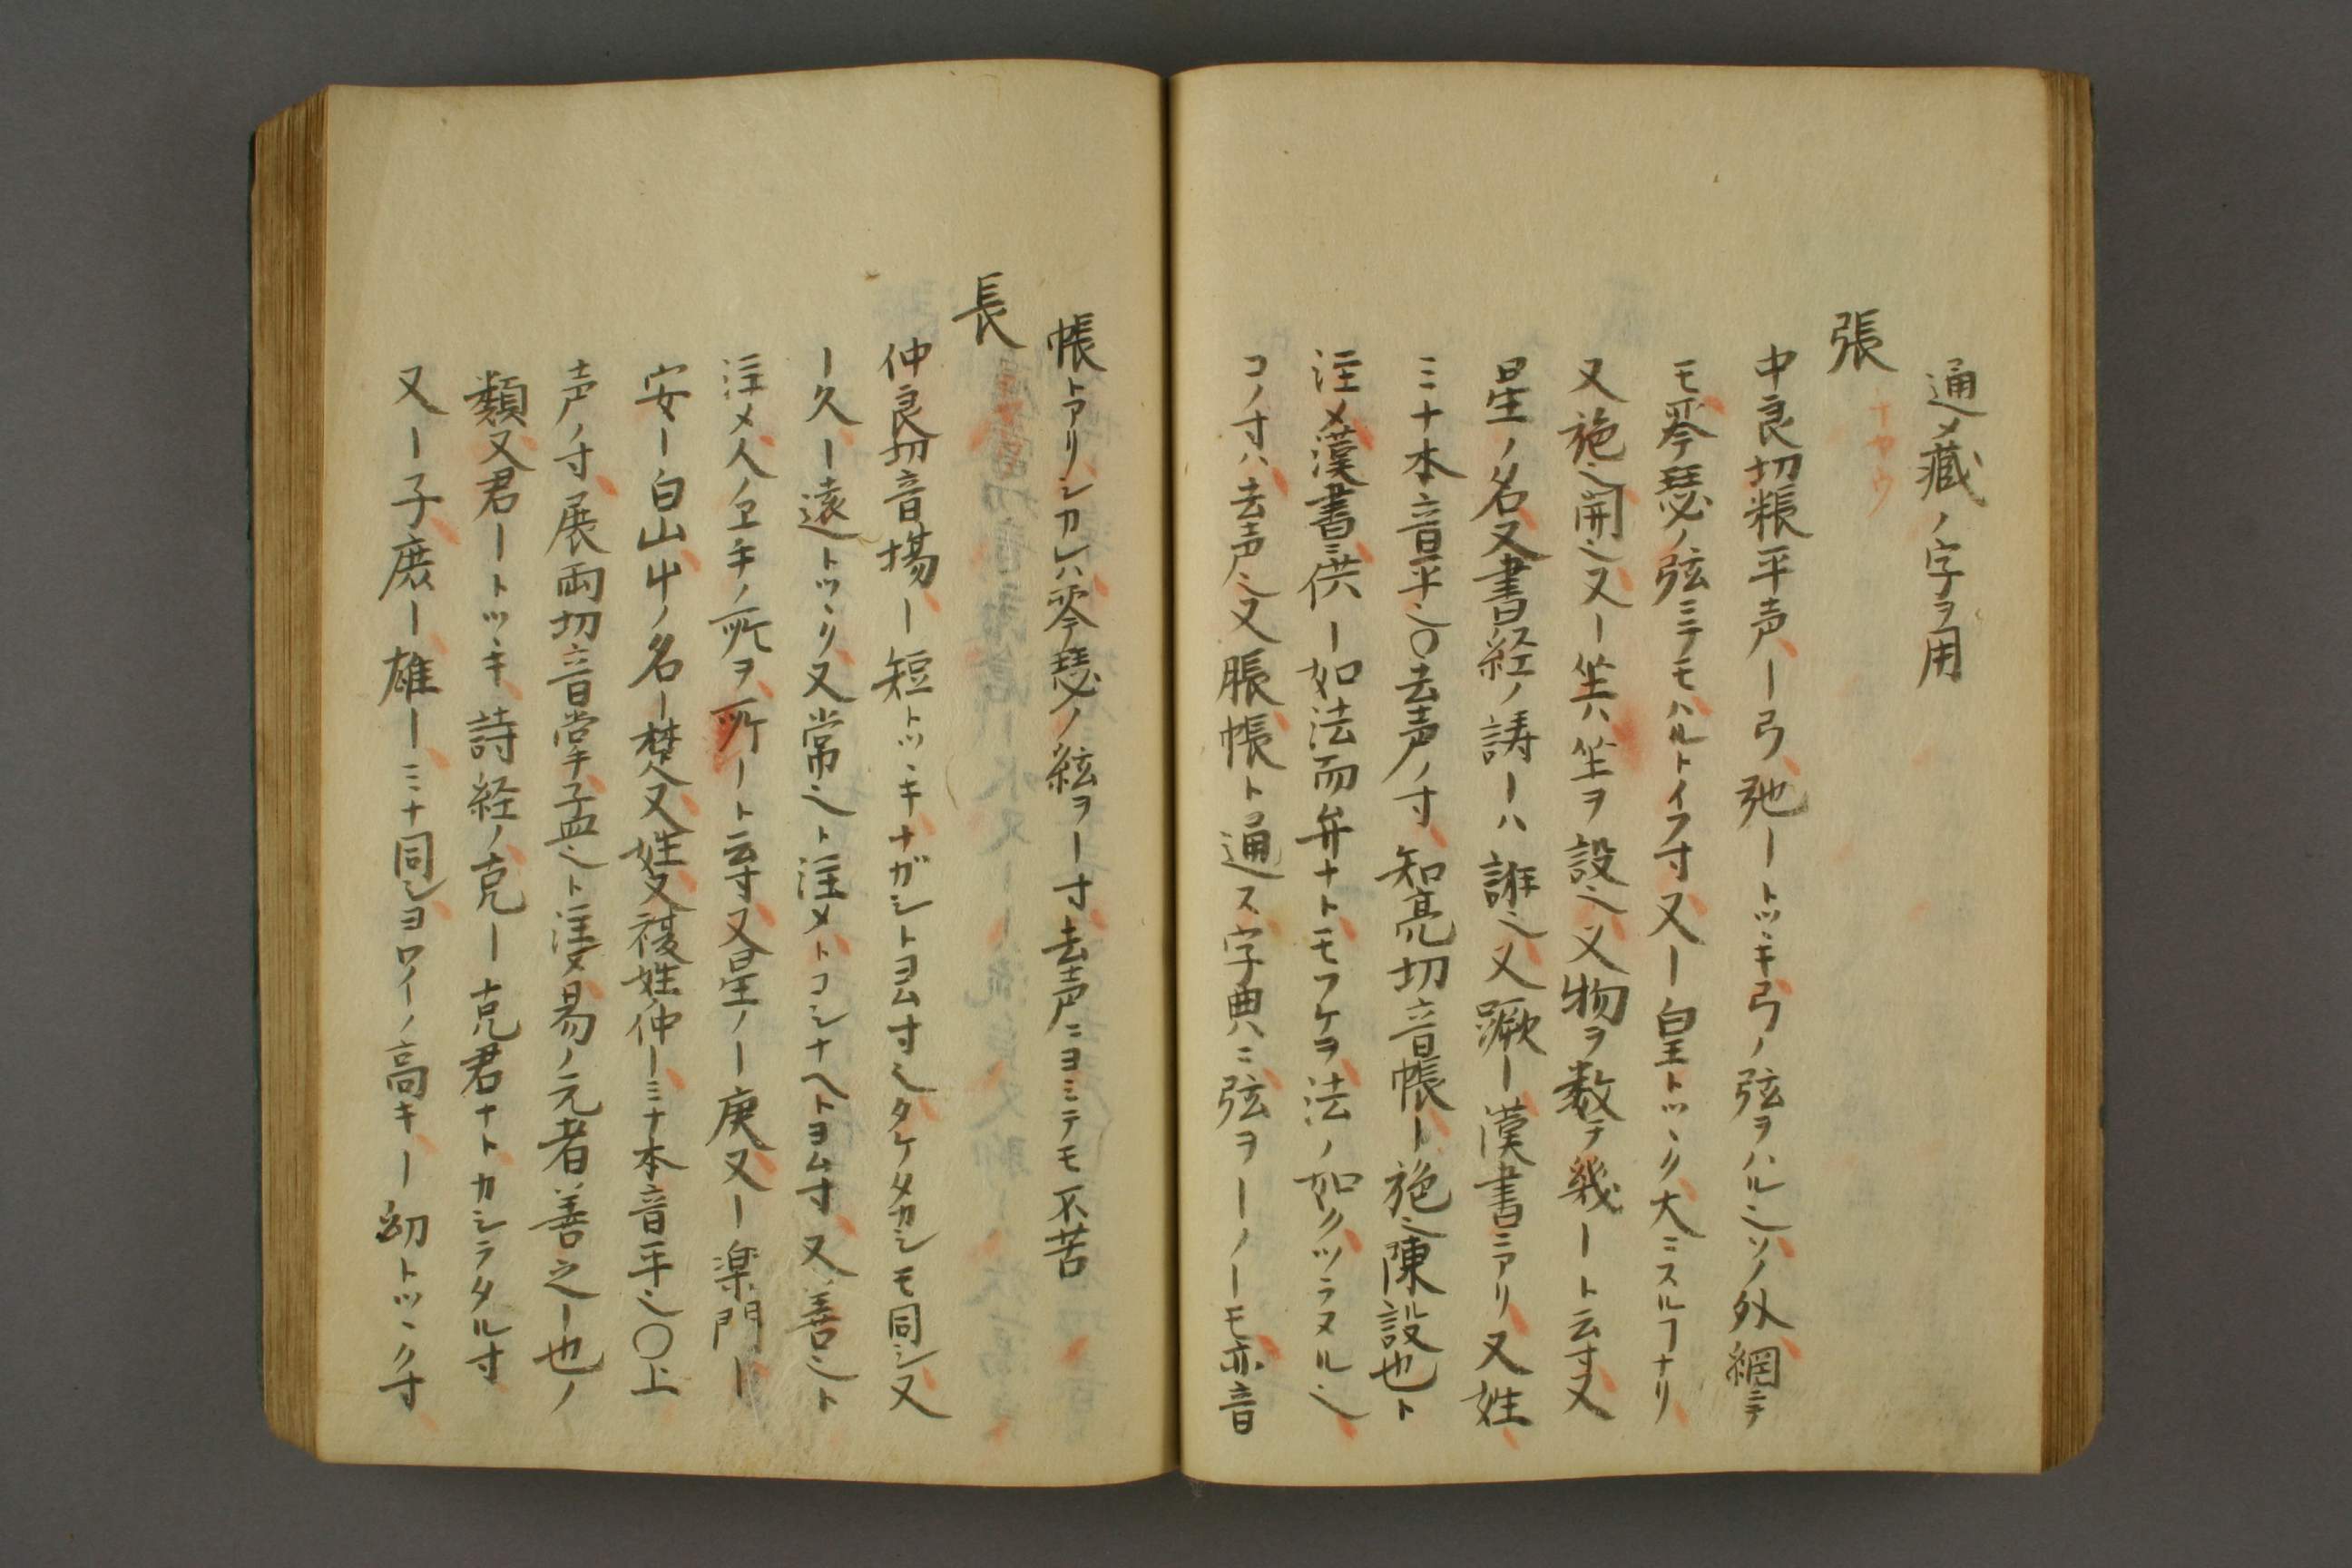 通〆蔵ノ字ヲ用
張
チヤウ
中良切粻平声ー弓弛ートツヽキ弓ノ弦ヲハル也ソノ外網ニテ
モ琴瑟ノ弦ニテモハルトイフ寸又ー皇トツヽク大ニスルヿナリ
又施也開也又ー坐ハ坐ヲ設也又物ヲ数テ幾ート云寸又
星ノ名又書経ノ譸ーハ誑也又蹶ー漢書ニアリ又姓
ミナ本音平也〇去声ノ寸知亮切音帳ー施也陳設也ト
注〆漢書ニ供ー如法而弁ナトモワケヲ法ノ如クツラヌル也
コノ寸ハ去声也又脹帳ト通ス字典ニ弦ヲーノーモ亦音
帳トアリシカレハ琴瑟ノ絃ヲー寸去声ニヨミテモ不苦
長
仲良切音場ー短トツヽキナガシトヨム寸也タケタカシモ同シ又
ー久ー遠トツヽク又常也ト注〆トコシナヘトヨム寸又善也ト
注〆人ノヱ手ノ所ヲ所ート云寸又星ノー庚又ー楽門ー
安ー白山中ノ名ー楚又姓又複姓仲ーミナ本音平也〇上
声ノ寸展両切音掌孟也ト注〆易ノ元者善之ー也ノ
類又君ートツヽキ詩経ノ克ー克君ナトカシラタル寸
又ー子庶ー雄ーミナ同シヨワイノ高キー幼トツヽク寸